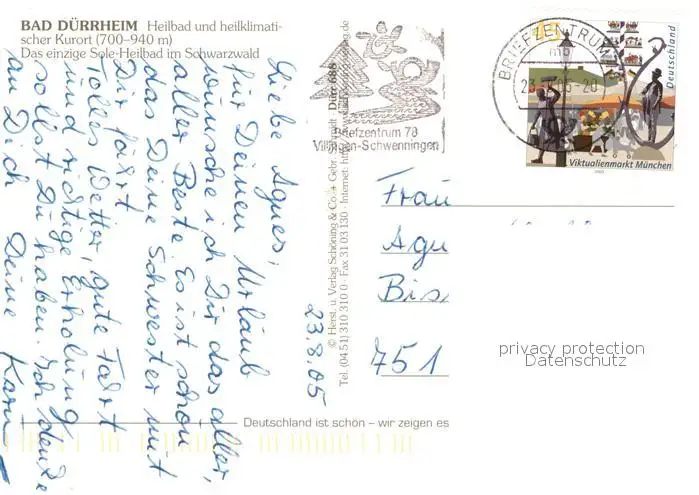 BAD DÜRRHEIM Heilbad und heilklimati-
scher Kurort (700–940 m)
Das einzige Sole-Heilbad im Schwarzwald
23.8.05
Liebe Agnes,
für Deinen Urlaub
wünsche ich Dir das aller,
aller Beste. Es ist schön
das Deine Schwester mit
Dir fährt.
Tolles Wetter, gute Fahrt
und richtige Erholung
sollst Du haben. Ich denke
an Dich Deine Karin
© Herst. u. Verlag Schöning & Co. + Gebr. Schmidt
Tel. (04 51) 310 310 0 · Fax 31 03 130 · Internet:
Deutschland ist schön – wir zeigen es
Briefzentrum 78
Villingen-Schwenningen
BRIEFZENTRUM
45
Deutschland
Viktualienmarkt München
Frau
Agn
Bis
751
privacy protection
Datenschutz